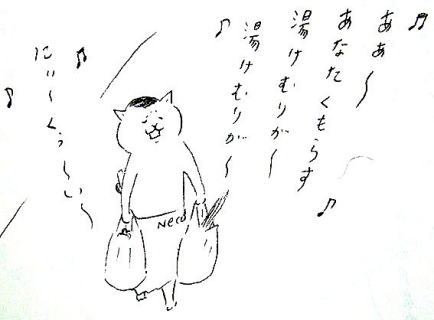 ああ〜
あなたくもらす
湯けむりが〜
湯けむりが〜
にぃ〜くぅ〜い〜
Neco